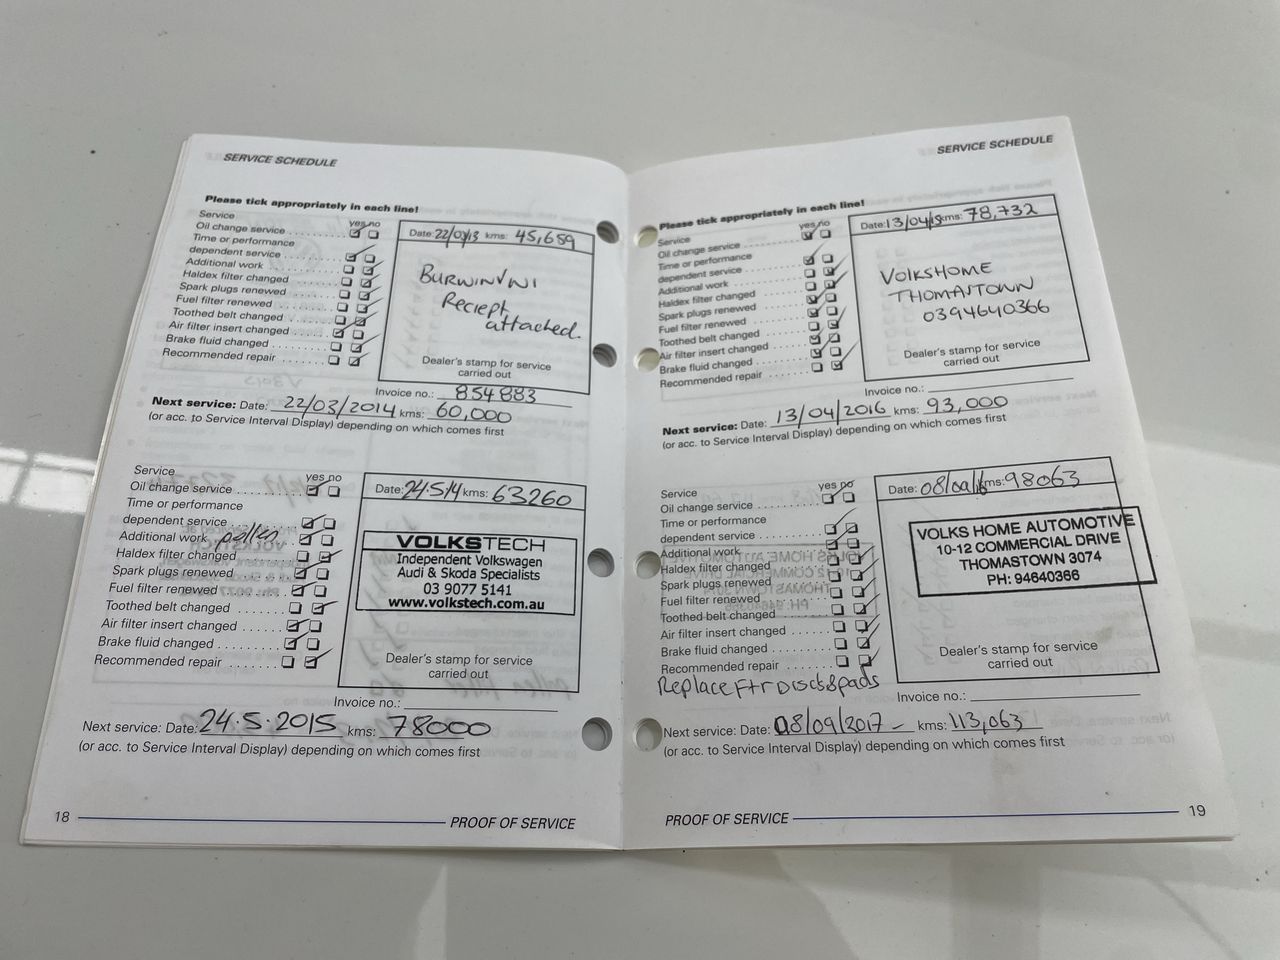 SERVICE SCHEDULE
Please tick appropriately in each line!
Service
yes no
Oil change service
Time or performance
dependent service
Additional work
Haldex filter changed
Spark plugs renewed
Fuel filter renewed
Toothed belt changed
Air filter insert changed
Brake fluid changed
Recommended repair
Date: 22/03/13 kms: 45,659
Reciept
attached.
Dealer's stamp for service
carried out
Invoice no.: 854883
Next service: Date: 22/03/2014 kms: 60,000
(or acc. to Service Interval Display) depending on which comes first
Service
yes no
Oil change service
Time or performance
dependent service
Additional work pollen
Haldex filter changed
Spark plugs renewed
Fuel filter renewed
Toothed belt changed
Air filter insert changed
Brake fluid changed
Recommended repair
Date: 24.5.14 kms: 63260
VOLKSTECH
Independent Volkswagen
Audi & Skoda Specialists
03 9077 5141
www.volkstech.com.au
Dealer's stamp for service
carried out
Invoice no.:
Next service: Date: 24.5.2015 kms: 78000
(or acc. to Service Interval Display) depending on which comes first
18
PROOF OF SERVICE
SERVICE SCHEDULE
Please tick appropriately in each line!
Service
yes no
Oil change service
Time or performance
dependent service
Additional work
Haldex filter changed
Spark plugs renewed
Fuel filter renewed
Toothed belt changed
Air filter insert changed
Brake fluid changed
Recommended repair
Date: 13/04/15 kms: 78,732
VOLKSHOME
THOMASTOWN
0394640366
Dealer's stamp for service
carried out
Invoice no.:
Next service: Date: 13/04/2016 kms: 93,000
(or acc. to Service Interval Display) depending on which comes first
Service
yes no
Oil change service
Time or performance
dependent service
Additional work
Haldex filter changed
Spark plugs renewed
Fuel filter renewed
Toothed belt changed
Air filter insert changed
Brake fluid changed
Recommended repair
Replace F+r Discs & pads
Date: 08/09/16 kms: 98063
VOLKS HOME AUTOMOTIVE
10-12 COMMERCIAL DRIVE
THOMASTOWN 3074
PH: 94640366
Dealer's stamp for service
carried out
Invoice no.:
Next service: Date: 08/09/2017 - kms: 113,063
(or acc. to Service Interval Display) depending on which comes first
PROOF OF SERVICE
19